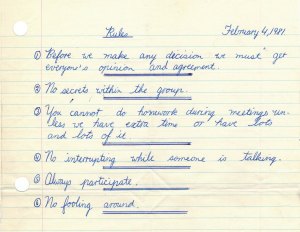 Rules
February 4, 1981
① Before we make any decision we must get
everyone's opinion and agreement.
② No secrets within the group.
③ You cannot do homework during meetings un-
less we have extra time or have lots
and lots of it
④ No interrupting while someone is talking.
⑤ Always participate.
⑥ No fooling around.